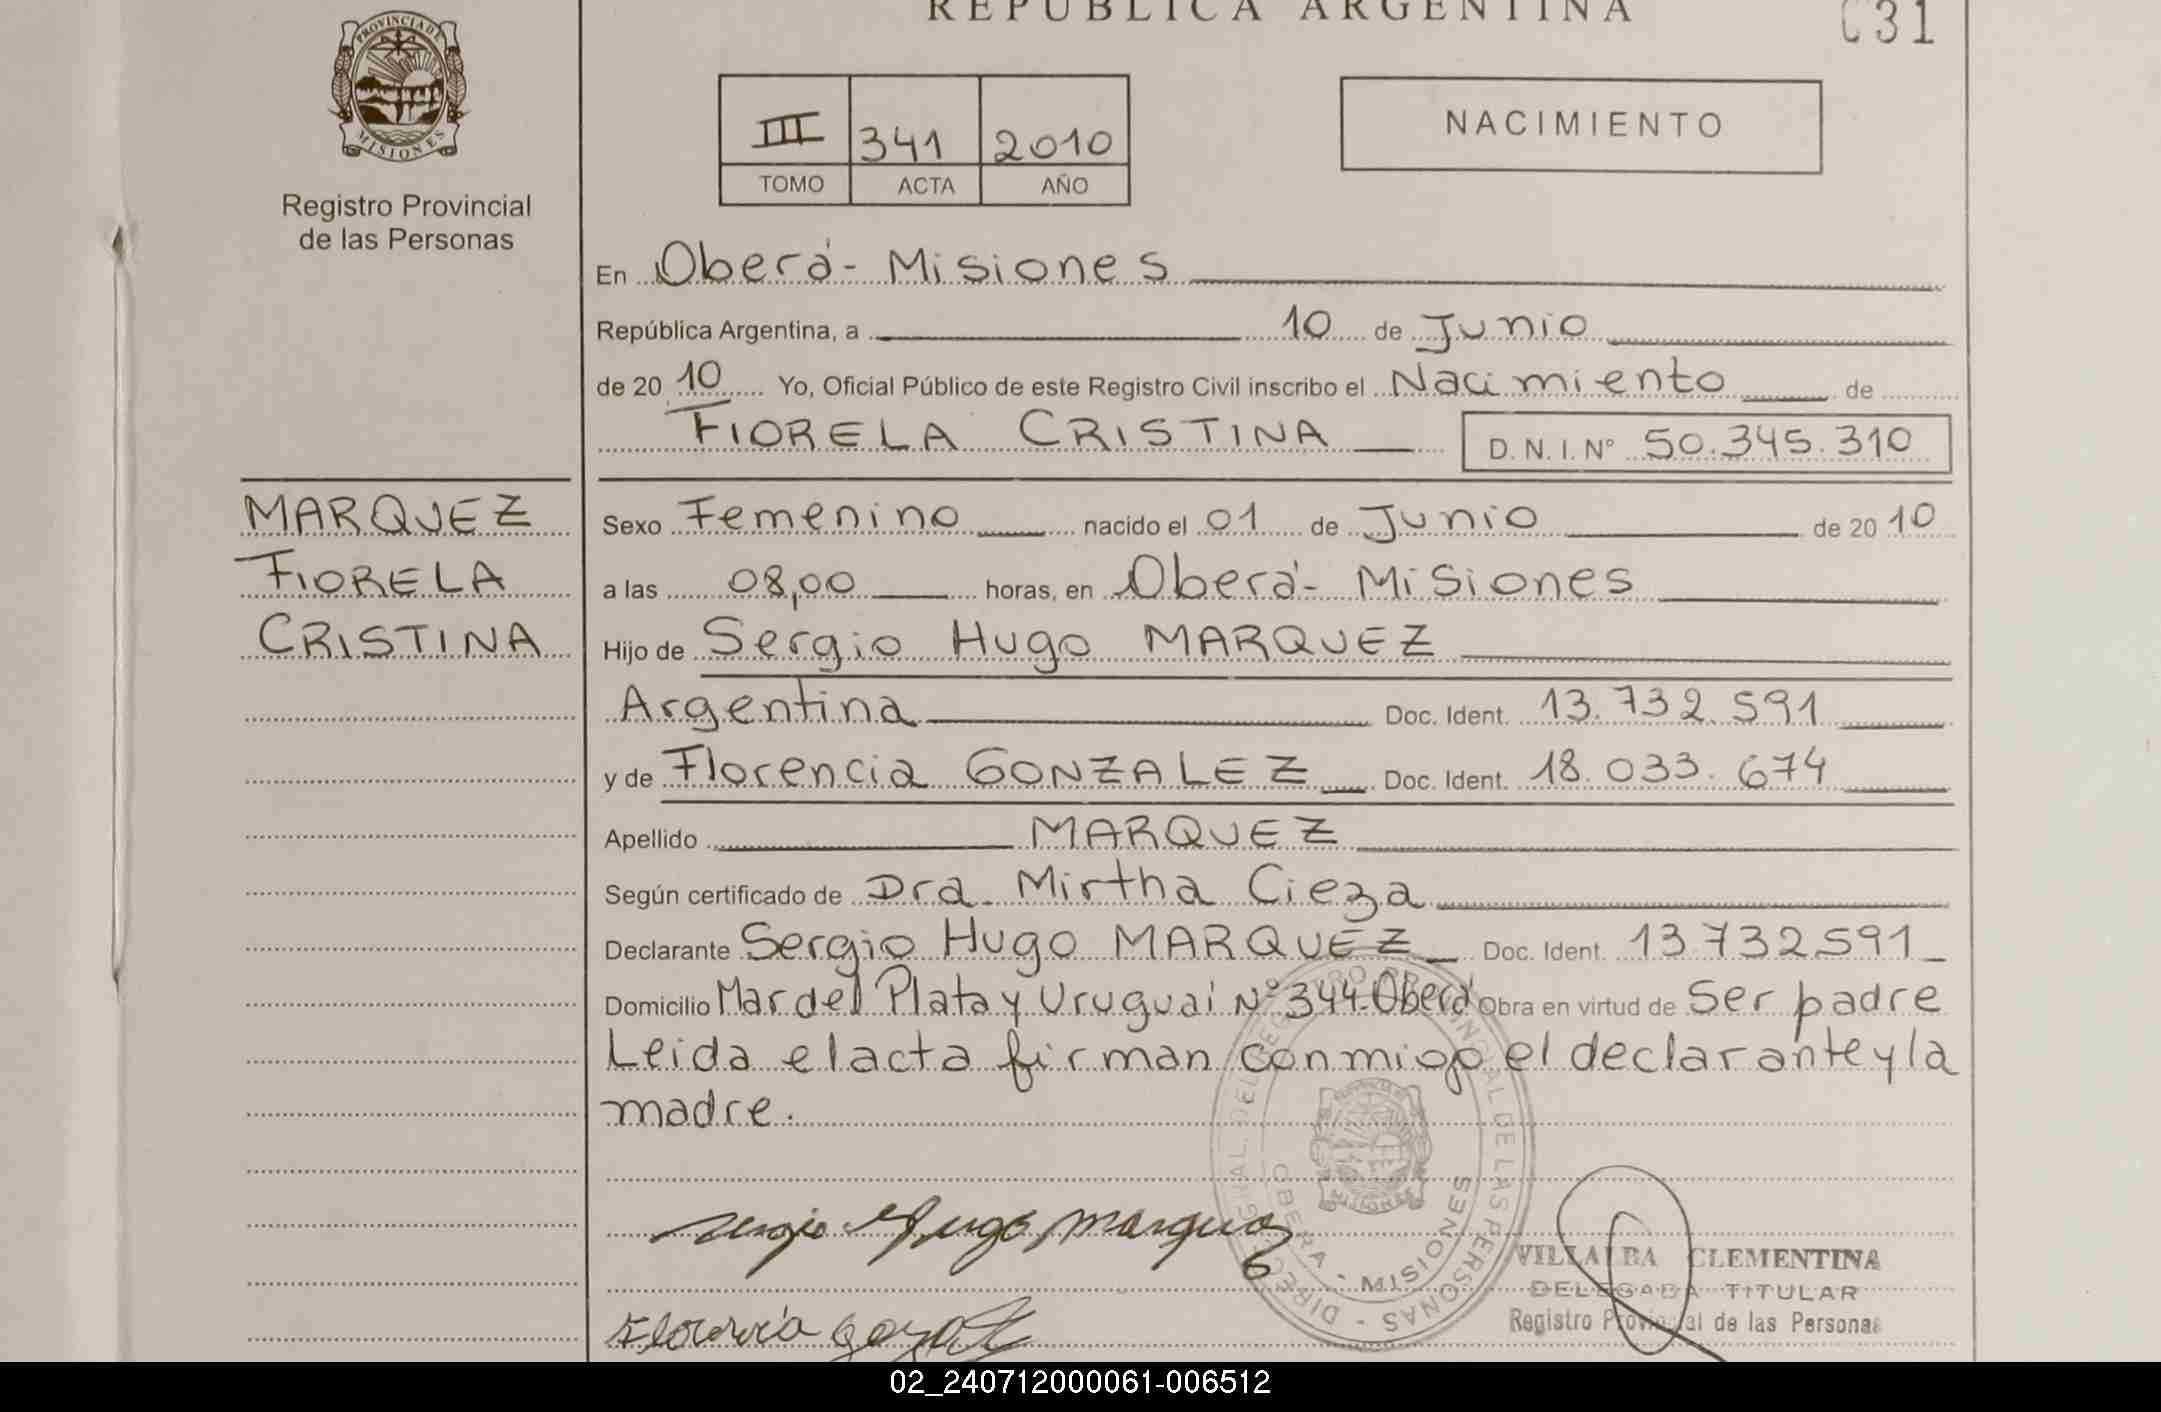 REPUBLICA ARGENTINA
031
PROVINCIA DE
MISIONES
Registro Provincial
de las Personas
III 341 2010
TOMO ACTA AÑO
NACIMIENTO
En Oberá - Misiones
República Argentina, a 10 de Junio
de 20 10 Yo, Oficial Público de este Registro Civil inscribo el Nacimiento de
FIORELA CRISTINA D.N.I.Nº 50.345.310
MARQUEZ
FIORELA
CRISTINA
Sexo Femenino nacido el 01 de Junio de 20 10
a las 08,00 horas, en Oberá - Misiones
Hijo de Sergio Hugo MARQUEZ
Argentina Doc. Ident. 13.732.591
y de Florencia GONZALEZ Doc. Ident. 18.033.674
Apellido MARQUEZ
Según certificado de Dra. Mirtha Cieza
Declarante Sergio Hugo MARQUEZ Doc. Ident. 13732591
Domicilio Mar del Plata y Uruguai Nº 344-Oberá Obra en virtud de Ser padre
Leida el acta firman conmigo el declarante y la
madre.
DIREC GRAL. DEL REGISTRO PROVINCIAL DE LAS PERSONAS -
OBERA - MISIONES
Sergio Hugo Marquez
VILLALBA CLEMENTINA
DELEGADA TITULAR
Registro Provincial de las Personas
02_240712000061-006512